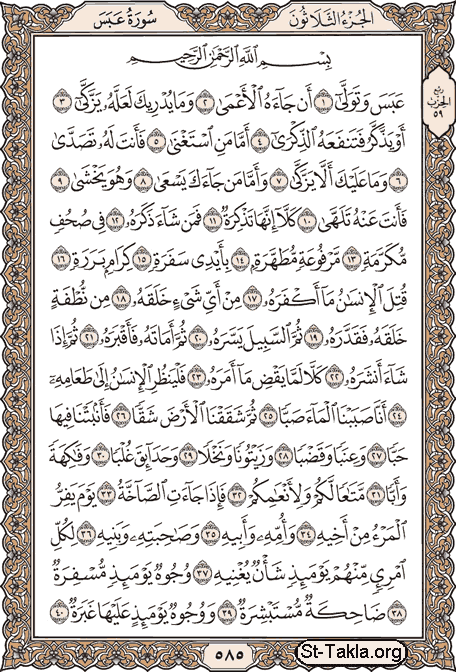 الجُزْءُ الثَّلَاثُونَ
سُورَةُ عَبَسَ
بِسْمِ اللَّهِ الرَّحْمَٰنِ الرَّحِيمِ
رُبع الحِزْب ٥٩
عَبَسَ وَتَوَلَّىٰٓ ١ أَن جَآءَهُ ٱلْأَعْمَىٰ ٢ وَمَا يُدْرِيكَ لَعَلَّهُۥ يَزَّكَّىٰٓ ٣
أَوْ يَذَّكَّرُ فَتَنفَعَهُ ٱلذِّكْرَىٰٓ ٤ أَمَّا مَنِ ٱسْتَغْنَىٰ ٥ فَأَنتَ لَهُۥ تَصَدَّىٰ
٦ وَمَا عَلَيْكَ أَلَّا يَزَّكَّىٰ ٧ وَأَمَّا مَن جَآءَكَ يَسْعَىٰ ٨ وَهُوَ يَخْشَىٰ ٩
فَأَنتَ عَنْهُ تَلَهَّىٰ ١٠ كَلَّآ إِنَّهَا تَذْكِرَةٌ ١١ فَمَن شَآءَ ذَكَرَهُۥ ١٢ فِى صُحُفٍ
مُّكَرَّمَةٍ ١٣ مَّرْفُوعَةٍ مُّطَهَّرَةٍۭ ١٤ بِأَيْدِى سَفَرَةٍ ١٥ كِرَامٍۭ بَرَرَةٍ ١٦
قُتِلَ ٱلْإِنسَٰنُ مَآ أَكْفَرَهُۥ ١٧ مِنْ أَىِّ شَىْءٍ خَلَقَهُۥ ١٨ مِن نُّطْفَةٍ
خَلَقَهُۥ فَقَدَّرَهُۥ ١٩ ثُمَّ ٱلسَّبِيلَ يَسَّرَهُۥ ٢٠ ثُمَّ أَمَاتَهُۥ فَأَقْبَرَهُۥ ٢١ ثُمَّ إِذَا
شَآءَ أَنشَرَهُۥ ٢٢ كَلَّا لَمَّا يَقْضِ مَآ أَمَرَهُۥ ٢٣ فَلْيَنظُرِ ٱلْإِنسَٰنُ إِلَىٰ طَعَامِهِۦٓ
٢٤ أَنَّا صَبَبْنَا ٱلْمَآءَ صَبًّا ٢٥ ثُمَّ شَقَقْنَا ٱلْأَرْضَ شَقًّا ٢٦ فَأَنۢبَتْنَا فِيهَا
حَبًّا ٢٧ وَعِنَبًا وَقَضْبًا ٢٨ وَزَيْتُونًا وَنَخْلًا ٢٩ وَحَدَآئِقَ غُلْبًا ٣٠ وَفَٰكِهَةً
وَأَبًّا ٣١ مَّتَٰعًا لَّكُمْ وَلِأَنْعَٰمِكُمْ ٣٢ فَإِذَا جَآءَتِ ٱلصَّآخَّةُ ٣٣ يَوْمَ يَفِرُّ
ٱلْمَرْءُ مِنْ أَخِيهِ ٣٤ وَأُمِّهِۦ وَأَبِيهِ ٣٥ وَصَٰحِبَتِهِۦ وَبَنِيهِ ٣٦ لِكُلِّ
ٱمْرِئٍ مِّنْهُمْ يَوْمَئِذٍ شَأْنٌ يُغْنِيهِ ٣٧ وُجُوهٌ يَوْمَئِذٍ مُّسْفِرَةٌ
٣٨ ضَاحِكَةٌ مُّسْتَبْشِرَةٌ ٣٩ وَوُجُوهٌ يَوْمَئِذٍ عَلَيْهَا غَبَرَةٌ ٤٠
٥٨٥
St-Takla.org